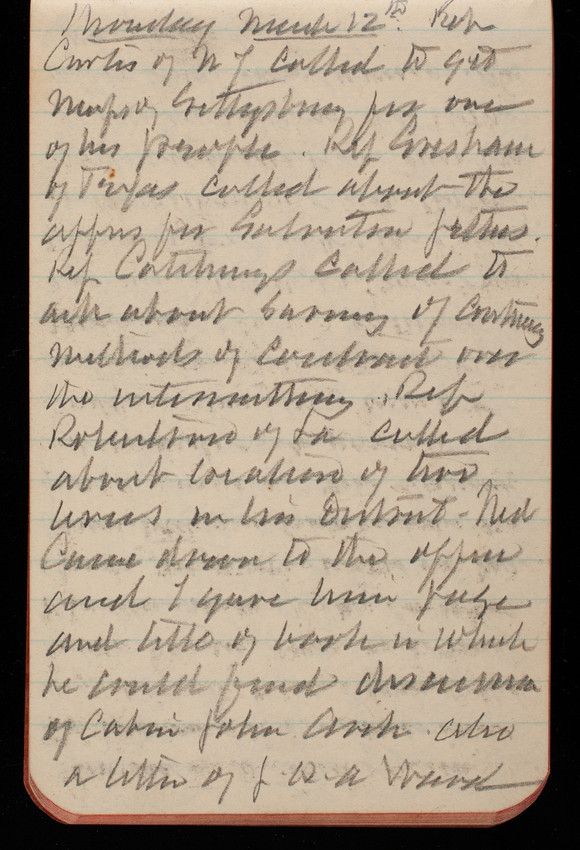 Monday March 12th. Rep
Curtis of N Y called to get
Maps of Gettysburg for one
of his people. Rep Gresham
of Texas called about the
appns for Galveston Jetties.
Rep Catchings called to
ask about saving of Continuing
methods of contract over
the intermittent. Rep
Robertson of La called
about location of two
levees in his District - Ned
Came down to the office
and I gave him page
and title of book in which
he could find discussion
of Cabin John Arch also
a letter of J. W. A